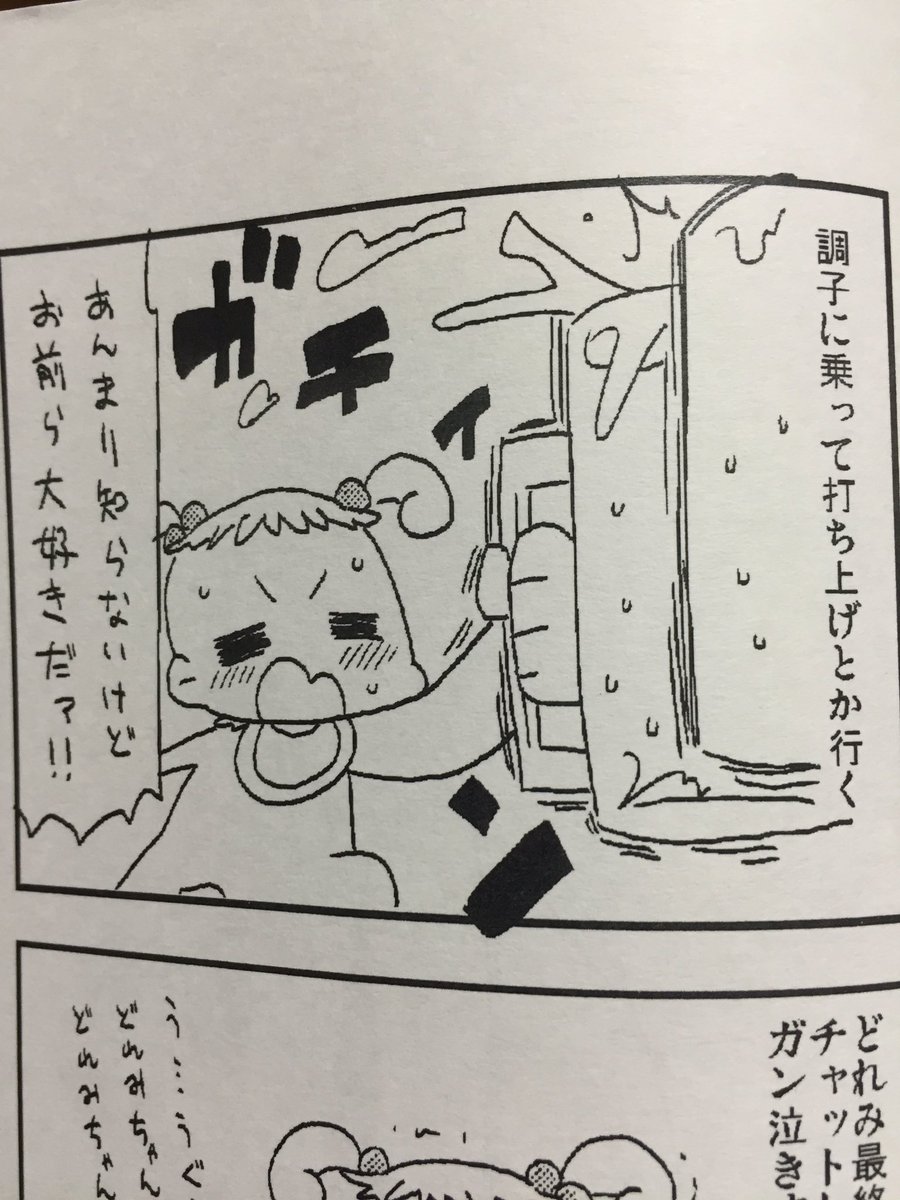 調子に乗って打ち上げとか行く
ガチィ
あんまり知らないけど
お前ら大好きだァ!!
どれみ最終
チャット
ガン泣き
う…うぐ
どれみちゃん
どれみちゃん